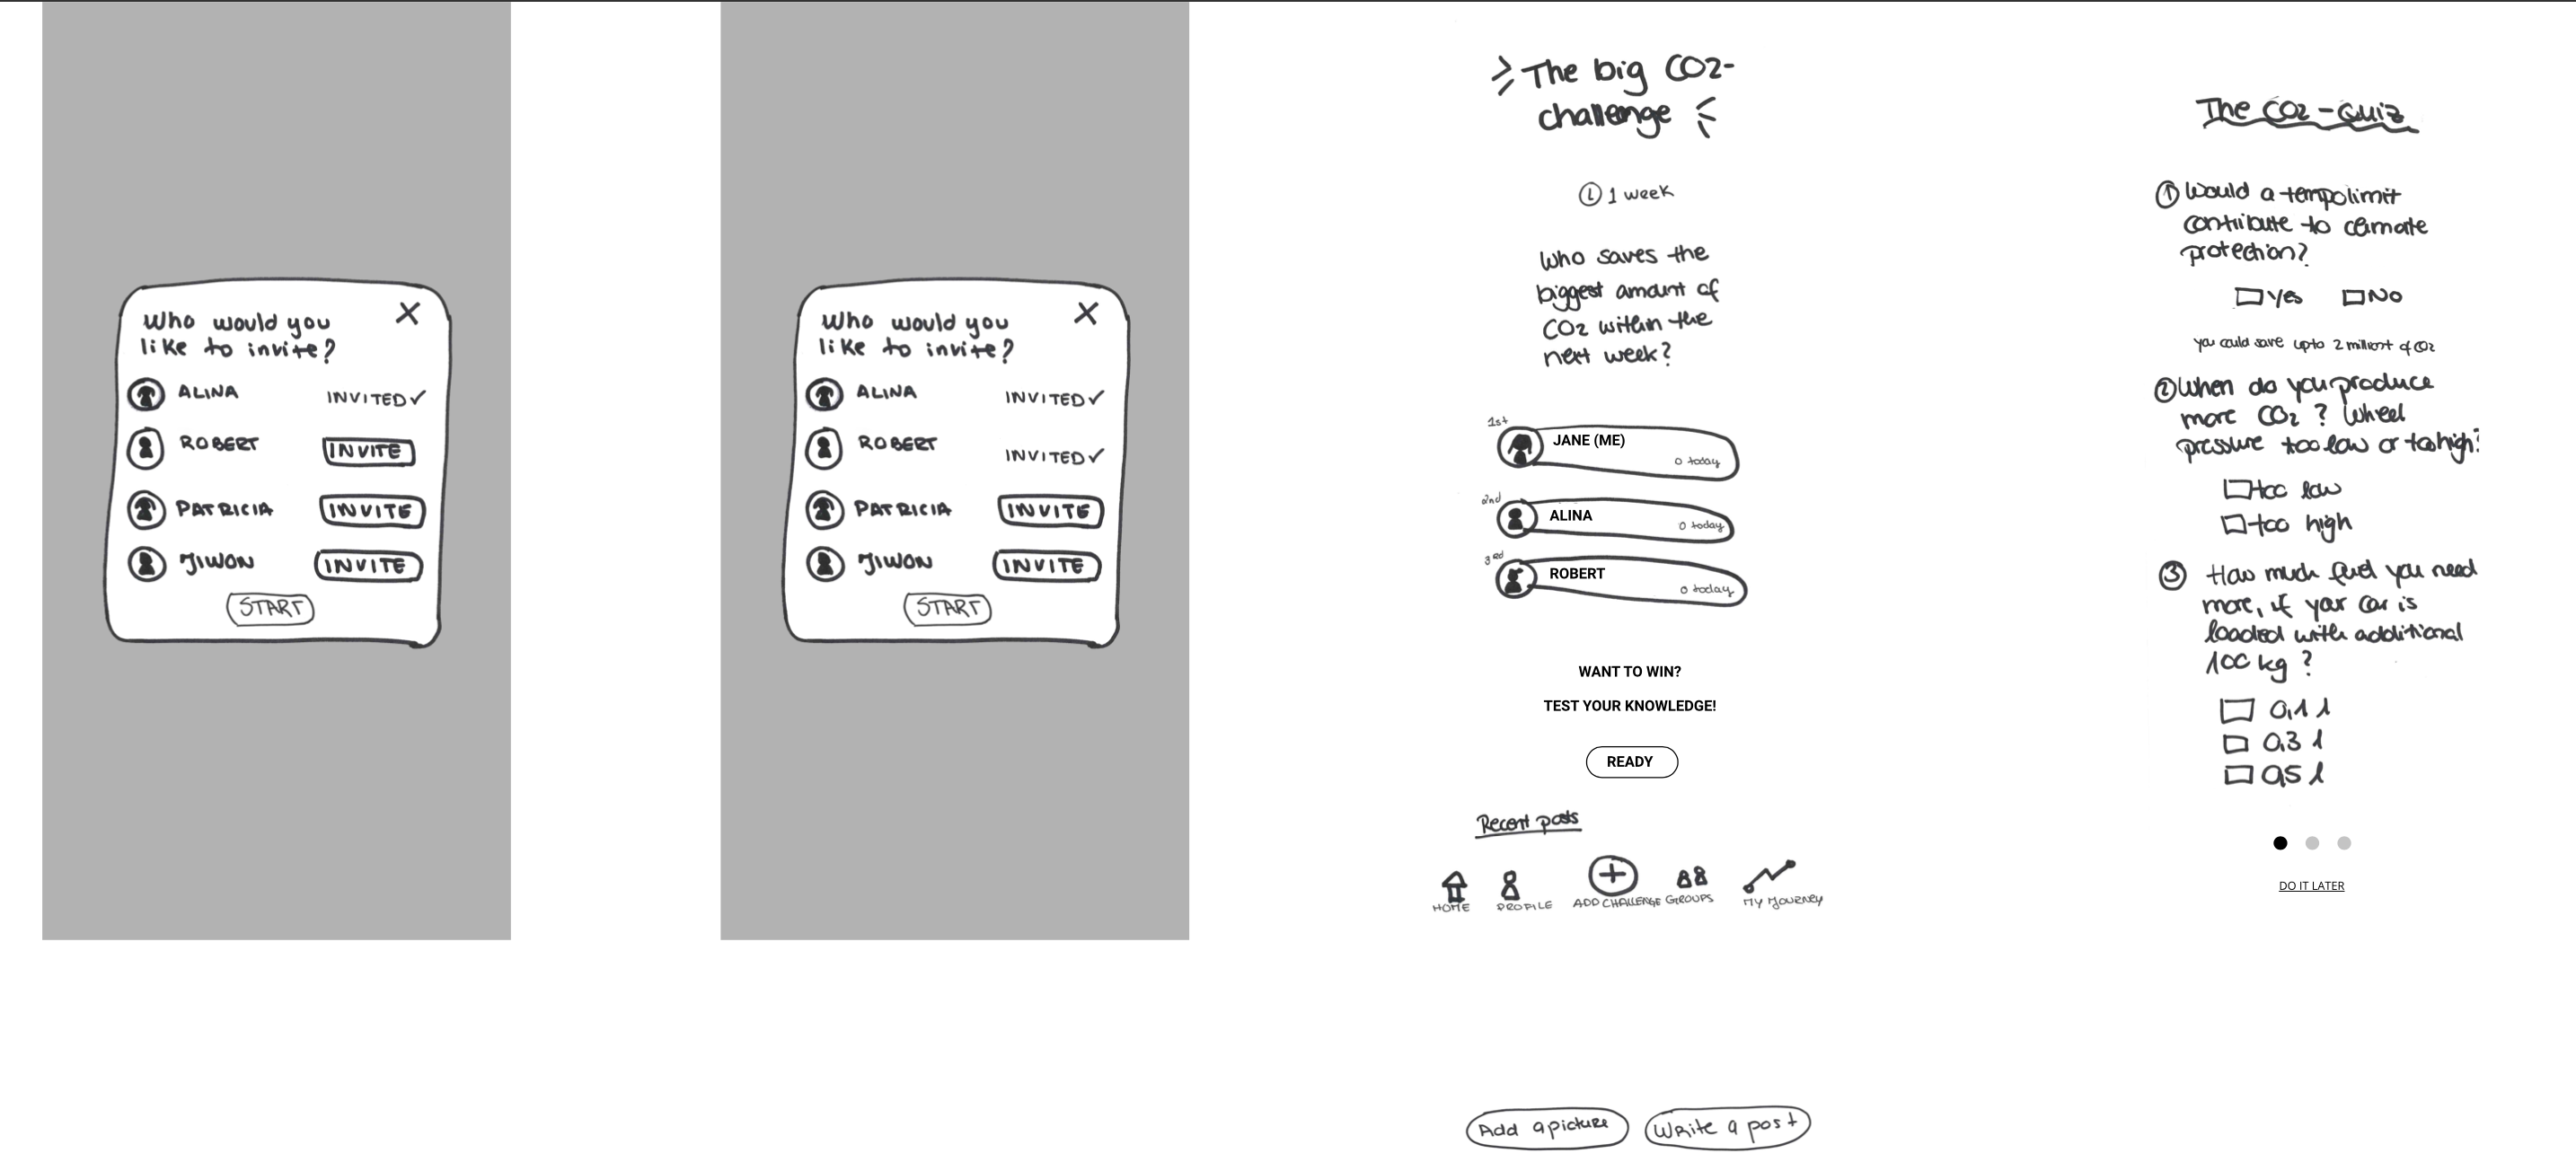 Who would you
like to invite?
ALINA
INVITED
ROBERT
INVITE
PATRICIA
INVITE
JIWON
INVITE
START
Who would you
like to invite?
ALINA
INVITED
ROBERT
INVITED
PATRICIA
INVITE
JIWON
INVITE
START
The big CO2-
challenge
1 week
Who saves the
biggest amount of
CO2 within the
next week?
1st
JANE (ME)
0 today
2nd
ALINA
0 today
3rd
ROBERT
0 today
WANT TO WIN?
TEST YOUR KNOWLEDGE!
READY
Recent posts
HOME
PROFILE
ADD CHALLENGE
GROUPS
MY JOURNEY
Add a picture
Write a post
The CO2-Quiz
1 Would a tempolimit
contribute to climate
protection?
Yes
No
you could save up to 2 million t of CO2
2 When do you produce
more CO2? Wheel
pressure too low or too high?
too low
too high
3 How much fuel you need
more, if your car is
loaded with additional
100 kg?
0,1 l
0,3 l
0,5 l
DO IT LATER